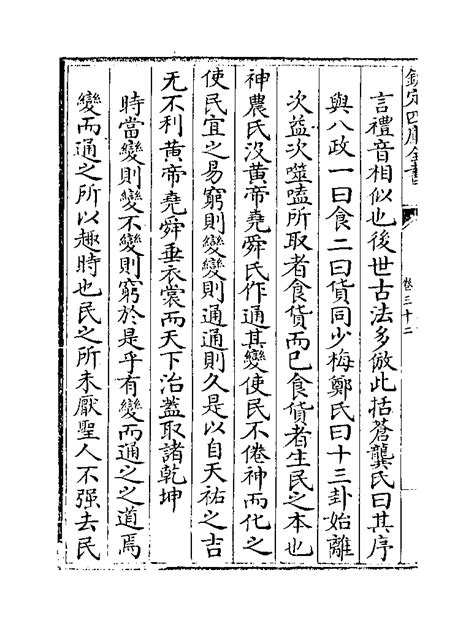 欽定四庫全書
卷三十二
言禮音相似也後世古法多倣此括蒼龔氏曰其序
與八政一曰食二曰貨同少梅鄭氏曰十三卦始離
次益次噬嗑所取者食貨而已食貨者生民之本也
神農氏沒黃帝堯舜氏作通其變使民不倦神而化之
使民宜之易窮則變變則通通則久是以自天祐之吉
无不利黃帝堯舜垂衣裳而天下治蓋取諸乾坤
時當變則變不變則窮於是乎有變而通之之道焉
變而通之所以趣時也民之所未厭聖人不强去民